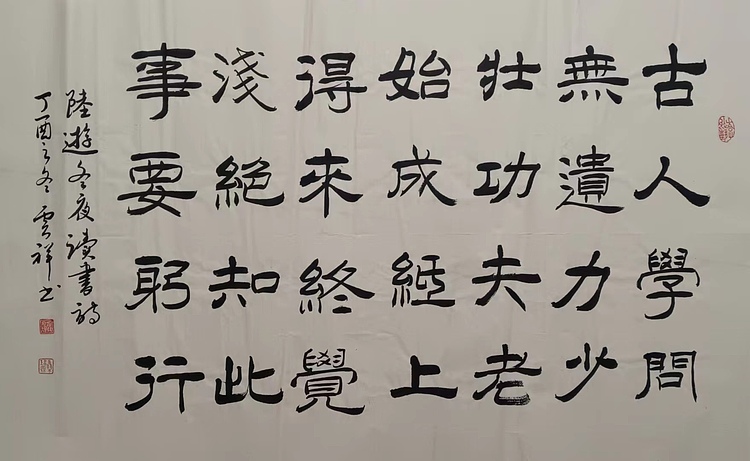 古人學問
無遺力少
壯功夫老
始成紙上
得來終覺
淺絕知此
事要躬行
陸遊冬夜读書詩
丁酉之冬雲祥书